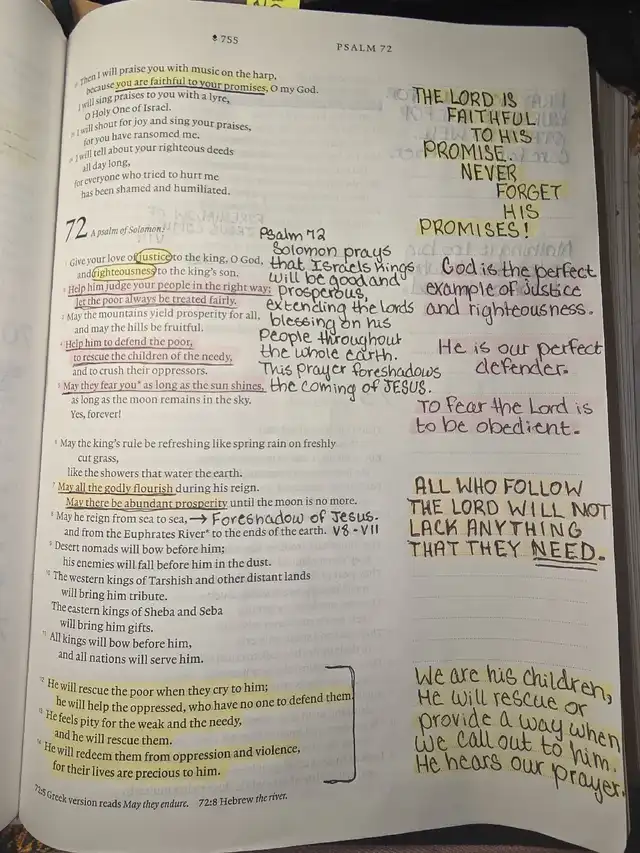 755
PSALM 72
22 Then I will praise you with music on the harp,
because you are faithful to your promises, O my God.
I will sing praises to you with a lyre,
O Holy One of Israel.
23 I will shout for joy and sing your praises,
for you have ransomed me.
24 I will tell about your righteous deeds
all day long,
for everyone who tried to hurt me
has been shamed and humiliated.
THE LORD IS
FAITHFUL
TO HIS
PROMISE.
NEVER
FORGET
HIS
PROMISES!
72 A psalm of Solomon.
1 Give your love of justice to the king, O God,
and righteousness to the king's son.
2 Help him judge your people in the right way;
let the poor always be treated fairly.
3 May the mountains yield prosperity for all,
and may the hills be fruitful.
4 Help him to defend the poor,
to rescue the children of the needy,
and to crush their oppressors.
5 May they fear you* as long as the sun shines,
as long as the moon remains in the sky.
Yes, forever!
Psalm 72
Solomon prays
that Israels Kings
will be good and
prosperous,
extending the lords
blessing on his
People throughout
the whole earth.
This prayer foreshadows
the coming of JESUS.
God is the perfect
example of justice
and righteousness.
He is our perfect
defender.
To fear the Lord is
to be obedient.
6 May the king's rule be refreshing like spring rain on freshly
cut grass,
like the showers that water the earth.
7 May all the godly flourish during his reign.
May there be abundant prosperity until the moon is no more.
8 May he reign from sea to sea, → Foreshadow of Jesus.
and from the Euphrates River* to the ends of the earth. V8-V11
9 Desert nomads will bow before him;
his enemies will fall before him in the dust.
10 The western kings of Tarshish and other distant lands
will bring him tribute.
The eastern kings of Sheba and Seba
will bring him gifts.
11 All kings will bow before him,
and all nations will serve him.
ALL WHO FOLLOW
THE LORD WILL NOT
LACK ANYTHING
THAT THEY NEED.
12 He will rescue the poor when they cry to him;
he will help the oppressed, who have no one to defend them.
13 He feels pity for the weak and the needy,
and he will rescue them.
14 He will redeem them from oppression and violence,
for their lives are precious to him.
We are his children,
He will rescue or
provide a way when
we call out to him.
He hears our prayer.
72:5 Greek version reads May they endure. 72:8 Hebrew the river.